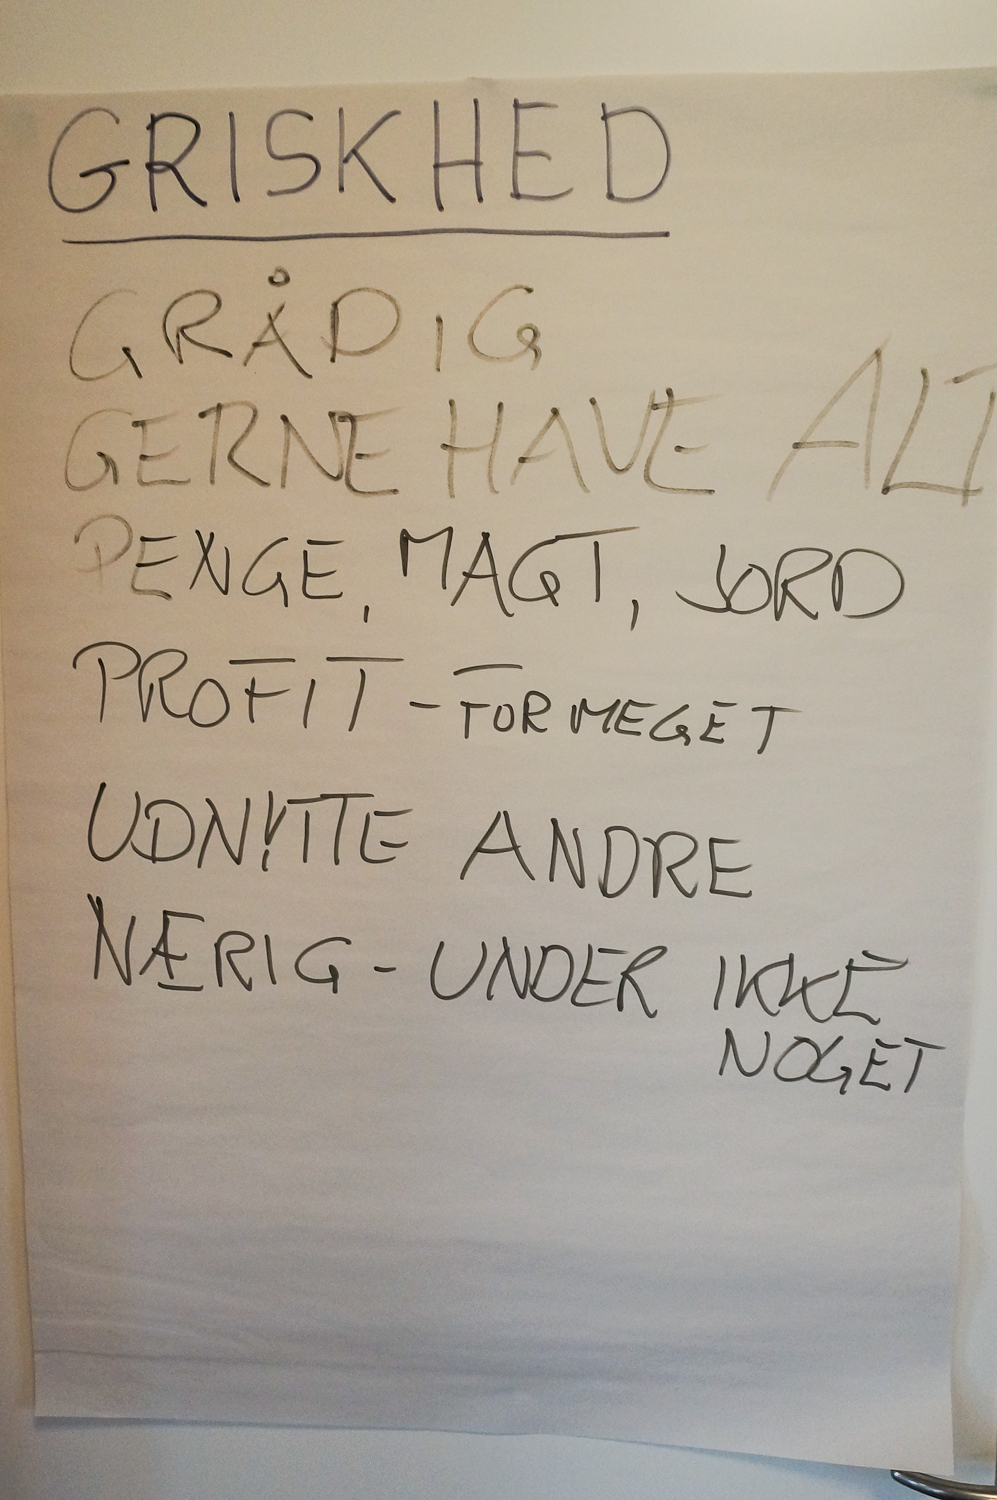 GRISKHED
GRÅDIG
GERNE HAVE ALT
PENGE, MAGT, JORD
PROFIT - FOR MEGET
UDNYTTE ANDRE
NÆRIG - UNDER IKKE
NOGET